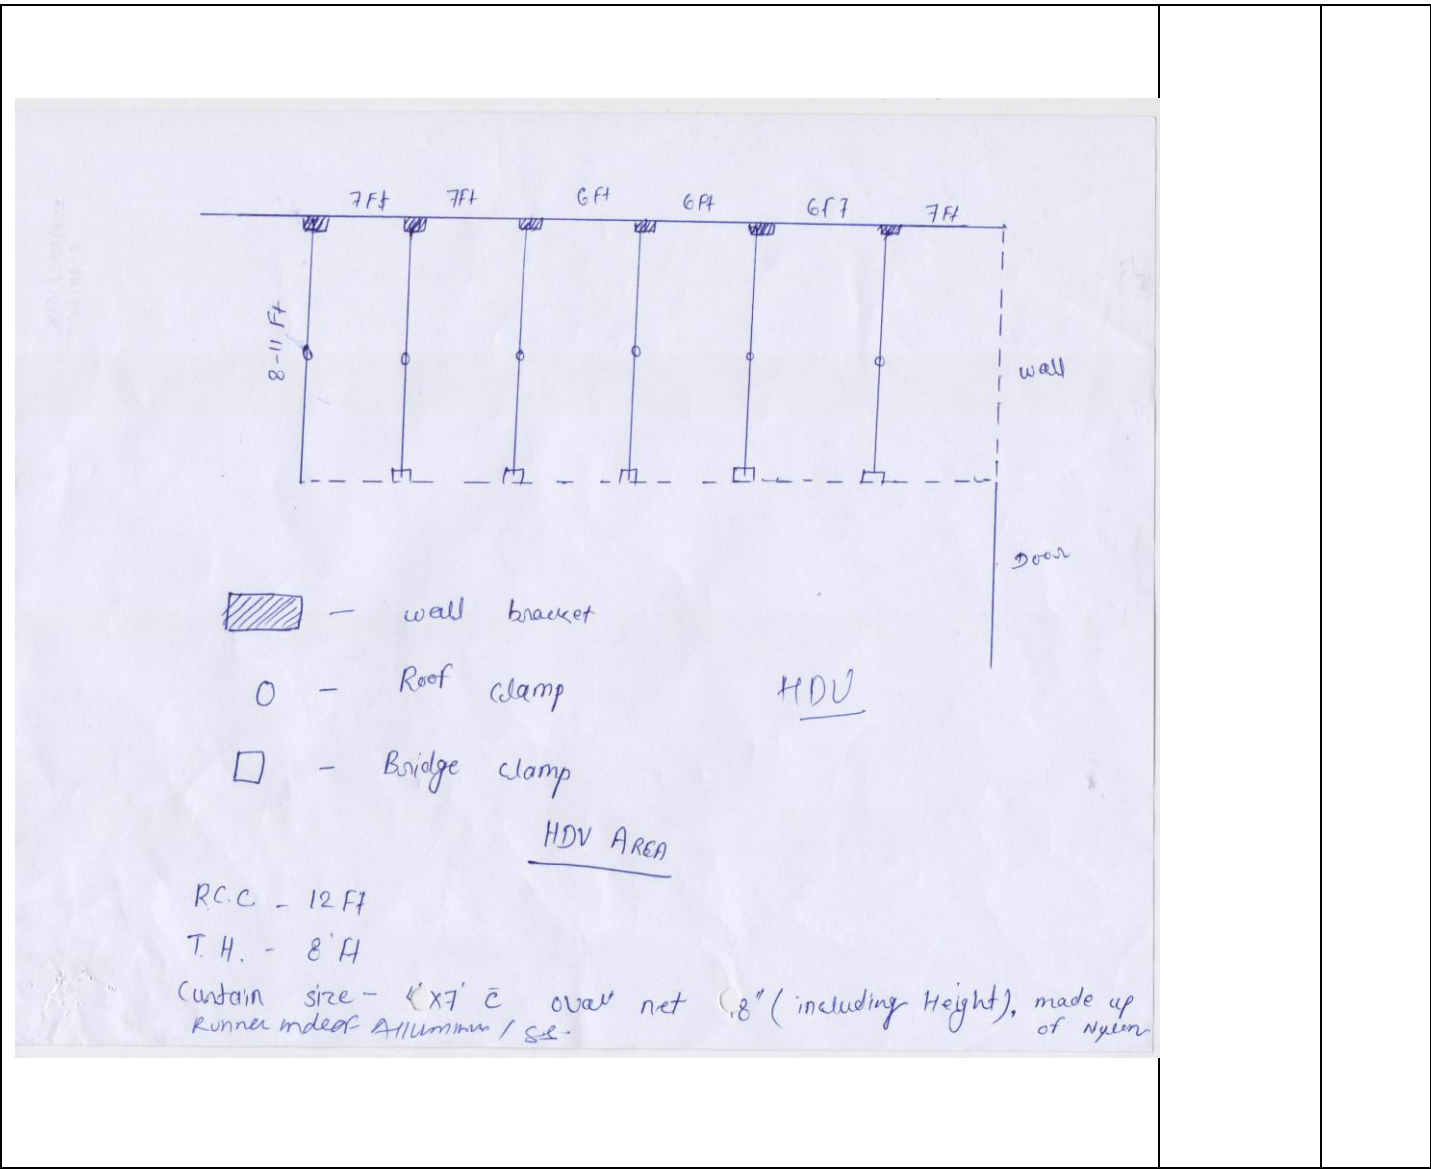 7Ft 7Ft 6Ft 6Ft 6Ft 7Ft
8-11 Ft
wall
Door
- wall bracket
- Roof clamp
HDU
- Bridge clamp
HDU AREA
R.C.C - 12 Ft
T. H. - 8' Ft
Curtain size - x7' c̄ oval net 8" (including Height), made up
of Nylon
Runner mdeof Alluminum / SS.